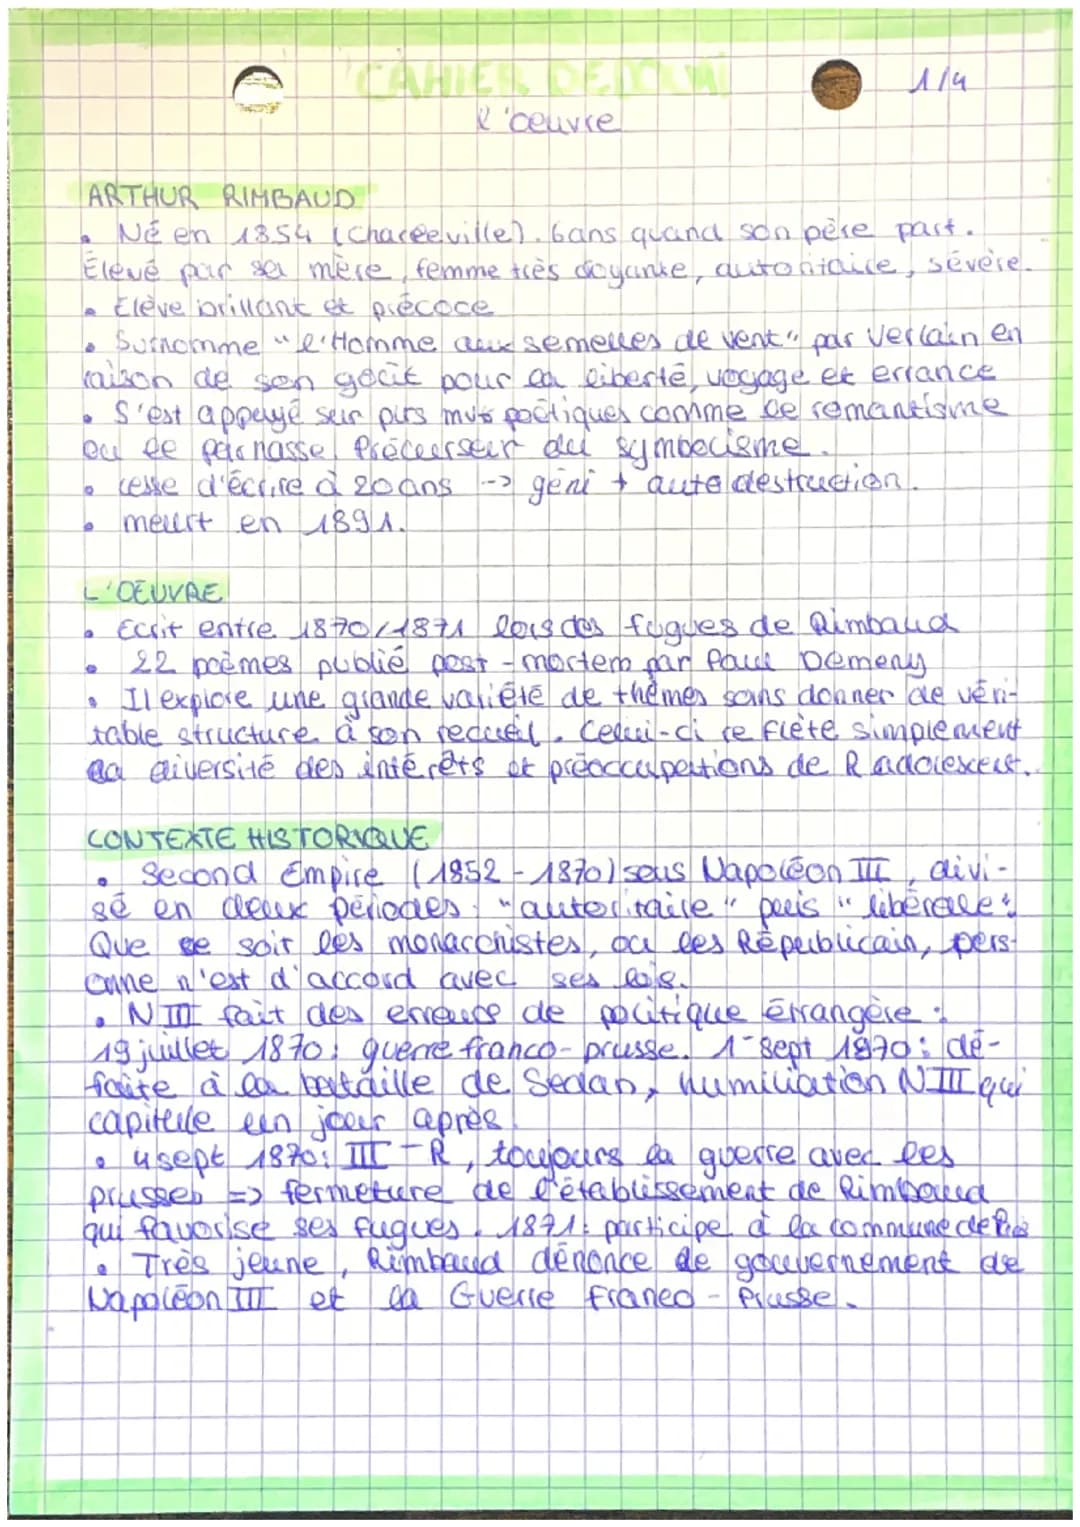 CAHIER DE DOUAI
1/4
l'œuvre
ARTHUR RIMBAUD
• Né en 1854 (Charleville). 6ans quand son père part.
Élevé par sa mère, femme très croyante, autoritaire, sévère.
• Elève brillant et précoce
• Surnomme "l'Homme aux semelles de vent" par Verlain en
raison de son goût pour la liberté, voyage et errance
• S'est appuyé sur plrs mvts poétiques comme le romantisme
ou le parnasse. Précurseur du symbolisme.
• cesse d'écrire à 20ans --> géni + autodestruction.
• meurt en 1891.
L'OEUVRE
• Ecrit entre 1870/1871 lors des fugues de Rimbaud
• 22 poèmes publié post-mortem par Paul Demeny
• Il explore une grande variété de thèmes sans donner de véri-
table structure à son recueil. Celui-ci reflète simplement
la diversité des intérêts et préoccupations de R adolescent.
CONTEXTE HISTORIQUE
• Second Empire (1852-1870) sous Napoléon III, divi-
sé en deux périodes : "autoritaire" puis "libérale".
Que ce soit les monarchistes, ou les Républicain, pers-
onne n'est d'accord avec ses lois.
• N III fait des erreurs de politique étrangère :
19 juillet 1870 : guerre franco-prusse. 1 sept 1870 : dé-
faite à la bataille de Sedan, humiliation N III qui
capitule un jour après.
• 4 sept 1870 : III - R, toujours la guerre avec les
prusses => fermeture de l'établissement de Rimbaud
qui favorise ses fugues. 1871 : participe à la commune de
• Très jeune, Rimbaud dénonce le gouvernement de
Napoléon III et la Guerre Franco-Prusse.